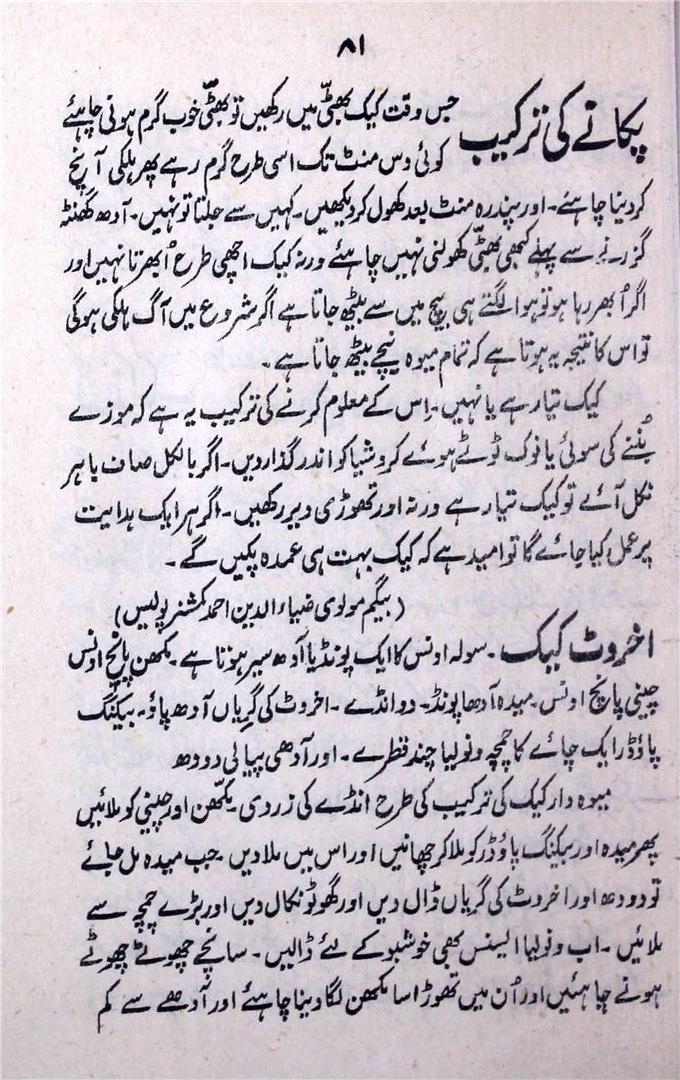 ۸۱
پکانے کی ترکیب جس وقت کیک بھٹی میں رکھیں تو بھٹی خوب گرم ہونی چاہئے
کوئی دس منٹ تک اسی طرح گرم رہے پھر ہلکی آنچ
کر دینا چاہئے۔ اور پندرہ منٹ بعد کھول کر دیکھیں۔ کہیں سے جلتا تو نہیں۔ آدھ گھنٹہ
گزرنے سے پہلے کبھی بھٹی کھولنی نہیں چاہئے ورنہ کیک اچھی طرح اُبھرتا نہیں اور
اگر اُبھر رہا ہو تو ہوا لگتے ہی بیچ میں سے بیٹھ جاتا ہے اگر شروع میں آگ ہلکی ہوگی
تو اس کا نتیجہ یہ ہوتا ہے کہ تمام میوہ نیچے بیٹھ جاتا ہے۔
کیک تیار ہے یا نہیں۔ اِس کے معلوم کرنے کی ترکیب یہ ہے کہ موزے
بُننے کی سوئی یا نوک ٹوٹے ہوئے کروشیا کو اندر گذار دیں۔ اگر بالکل صاف باہر
نکل آئے تو کیک تیار ہے ورنہ اور تھوڑی دیر رکھیں۔ اگر ہر ایک ہدایت
پر عمل کیا جائے گا تو امید ہے کہ کیک بہت ہی عمدہ پکیں گے۔
(بیگم مولوی ضیاء الدین احمد کمشنر پولیس)
اخروٹ کیک۔ سولہ اونس کا ایک پونڈ یا آدھ سیر ہوتا ہے۔ مکھن پانچ اونس
چینی پانچ اونس۔ میدہ آدھا پونڈ۔ دو انڈے۔ اخروٹ کی گریاں آدھ پاؤ۔ بیکنگ
پاؤڈر ایک چائے کا چمچہ ونولیا چند قطرے۔ اور آدھی پیالی دودھ
میوہ دار کیک کی ترکیب کی طرح انڈے کی زردی۔ مکھن اور چینی کو ملائیں
پھر میدہ اور بیکنگ پاؤڈر کو ملا کر چھانیں اور اس میں ملا دیں۔ جب میدہ مل جائے
تو دودھ اور اخروٹ کی گریاں ڈال دیں اور گھوٹو نکال دیں اور بڑے چمچہ سے
ملائیں۔ اب ونولیا ایسنس بھی خوشبو کے لئے ڈالیں۔ سانچے چھوٹے چھوٹے
ہونے چاہئیں اور اُن میں تھوڑا سا مکھن لگا دینا چاہئے اور آدھے سے کم